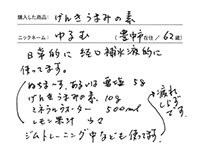 購入した商品： げんきうまみの素
ニックネーム： ゆるむ （豊中市在住 / 62歳）
日常的に 経口補水液的に
使ってます。
ぬちまーす、あるいは 雪塩 5g
げんきうまみの素 10g
ミネラルウォーター 500ml
レモン果汁 少々
疲れ
しらず
です
ジムトレーニング中なども使ってます